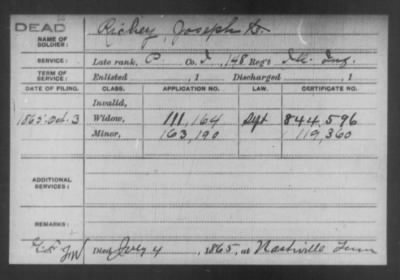 DEAD
NAME OF SOLDIER: Richey, Joseph D.
SERVICE: Late rank, P Co. I, 148 Reg't Ill. Inf.
TERM OF SERVICE: Enlisted , 1 Discharged , 1
DATE OF FILING. CLASS. APPLICATION NO. LAW. CERTIFICATE NO.
Invalid,
1865. Oct. 3 Widow, 111,164 844,596
Minor, 163,190 119,360
ADDITIONAL SERVICES:
REMARKS:
Died July 4 , 1865, at Nashville Tenn